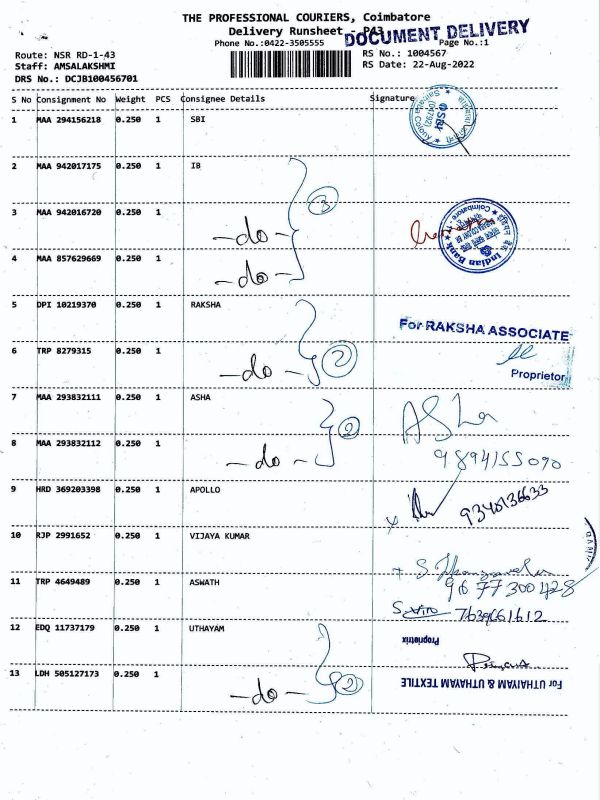 THE PROFESSIONAL COURIERS, Coimbatore
Delivery Runsheet - P43
DOCUMENT DELIVERY
Phone No.:0422-3505555 Page No.:1
Route: NSR RD-1-43 RS No.: 1004567
Staff: AMSALAKSHMI RS Date: 22-Aug-2022
DRS No.: DCJB100456701
S No Consignment No Weight PCS Consignee Details Signature
1 MAA 294156218 0.250 1 SBI
SBI
(04792)
2 MAA 942017175 0.250 1 IB
3
3 MAA 942016720 0.250 1 -do-
Indian Bank
Coimbatore
4 MAA 857629669 0.250 1 -do-
5 DPI 10219370 0.250 1 RAKSHA
For RAKSHA ASSOCIATE
6 TRP 8279315 0.250 1 -do- 2
Proprietor
7 MAA 293832111 0.250 1 ASHA
2
Asha
8 MAA 293832112 0.250 1 -do-
9894155090
9 HRD 369203398 0.250 1 APOLLO
9340136633
10 RJP 2991652 0.250 1 VIJAYA KUMAR
11 TRP 4649489 0.250 1 ASWATH
9677300428
7639661612
12 EDQ 11737179 0.250 1 UTHAYAM
Proprietrix
13 LDH 505127173 0.250 1 -do- 2
For UTHAIYAM & UTHAYAM TEXTILE